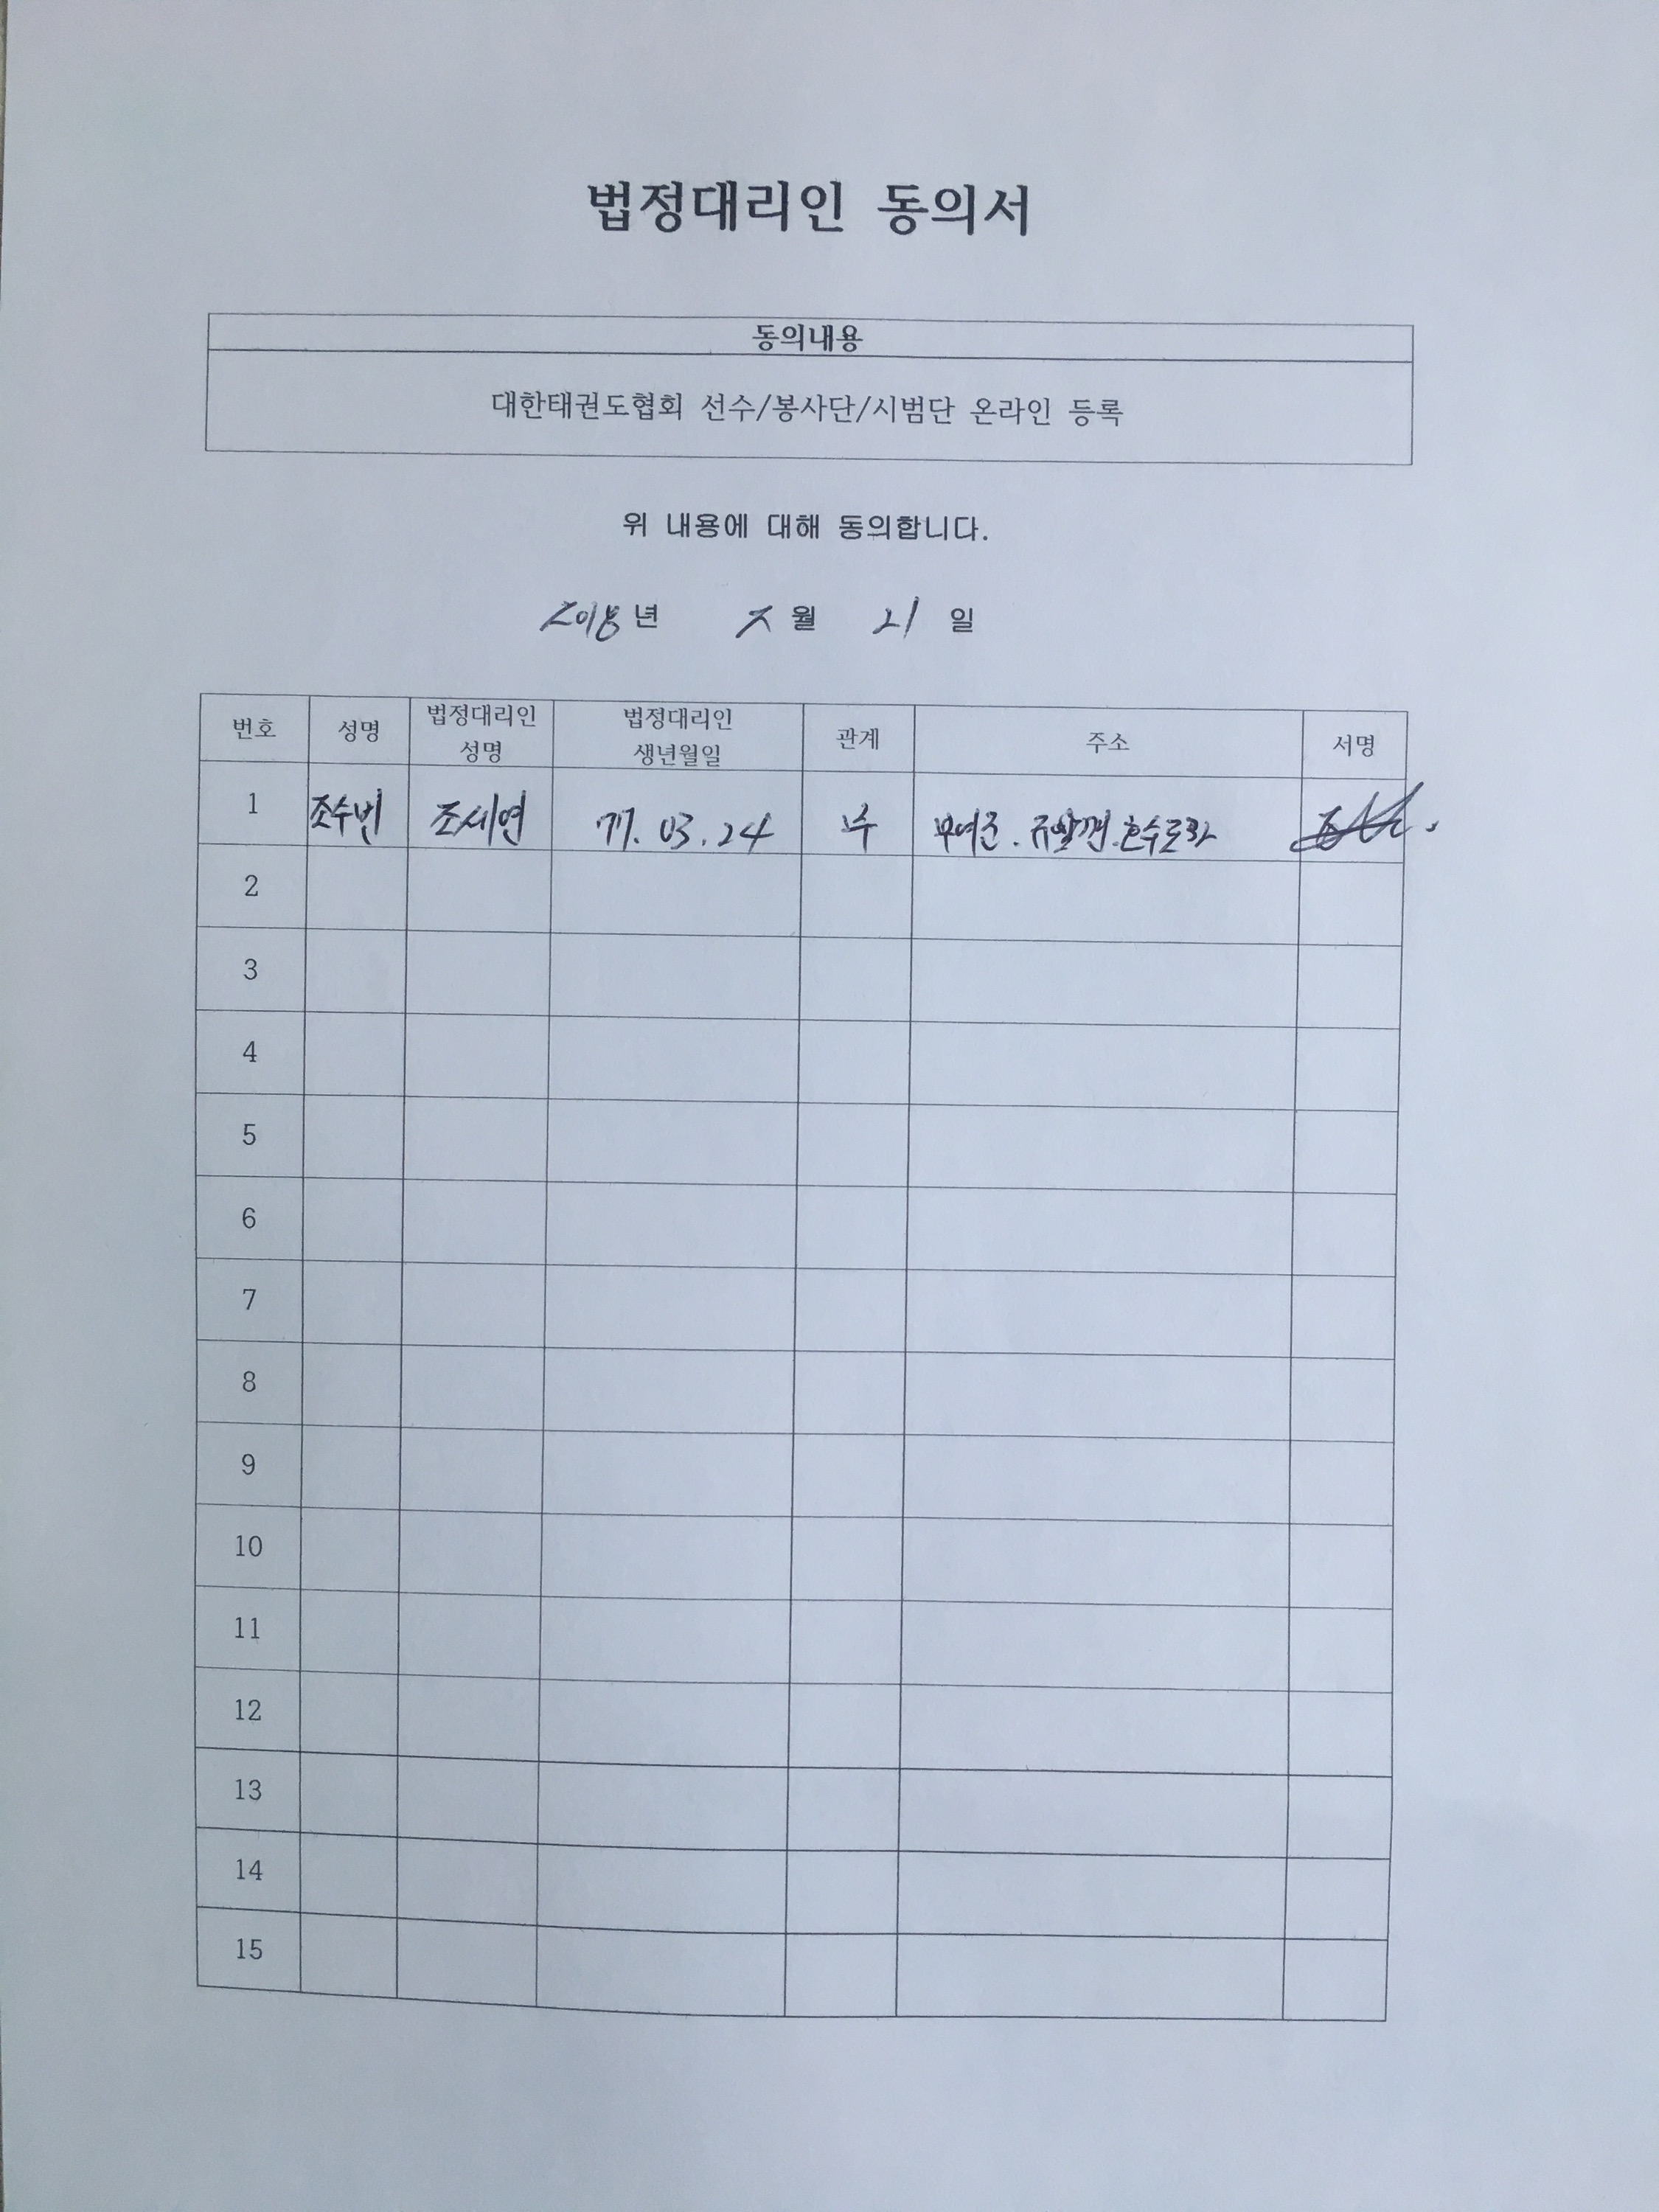 법정대리인 동의서
동의내용
대한태권도협회 선수/봉사단/시범단 온라인 등록
위 내용에 대해 동의합니다.
2018년 월 21 일
번호 성명 법정대리인 성명 법정대리인 생년월일 관계 주소 서명
1 조수빈 조세연 77.03.24 부 부여군.
2
3
4
5
6
7
8
9
10
11
12
13
14
15